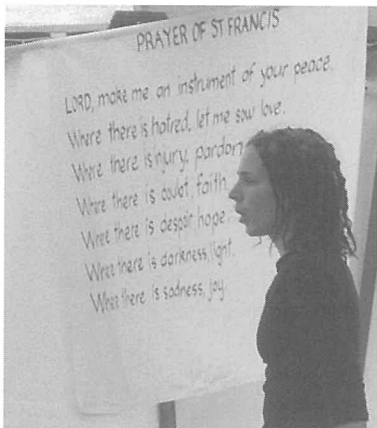 PRAYER OF ST FRANCIS
LORD, make me an instrument of your peace.
Where there is hatred, let me sow love.
Where there is injury, pardon
Where there is doubt, faith
Where there is despair hope.
Where there is darkness, light.
Where there is sadness, joy.